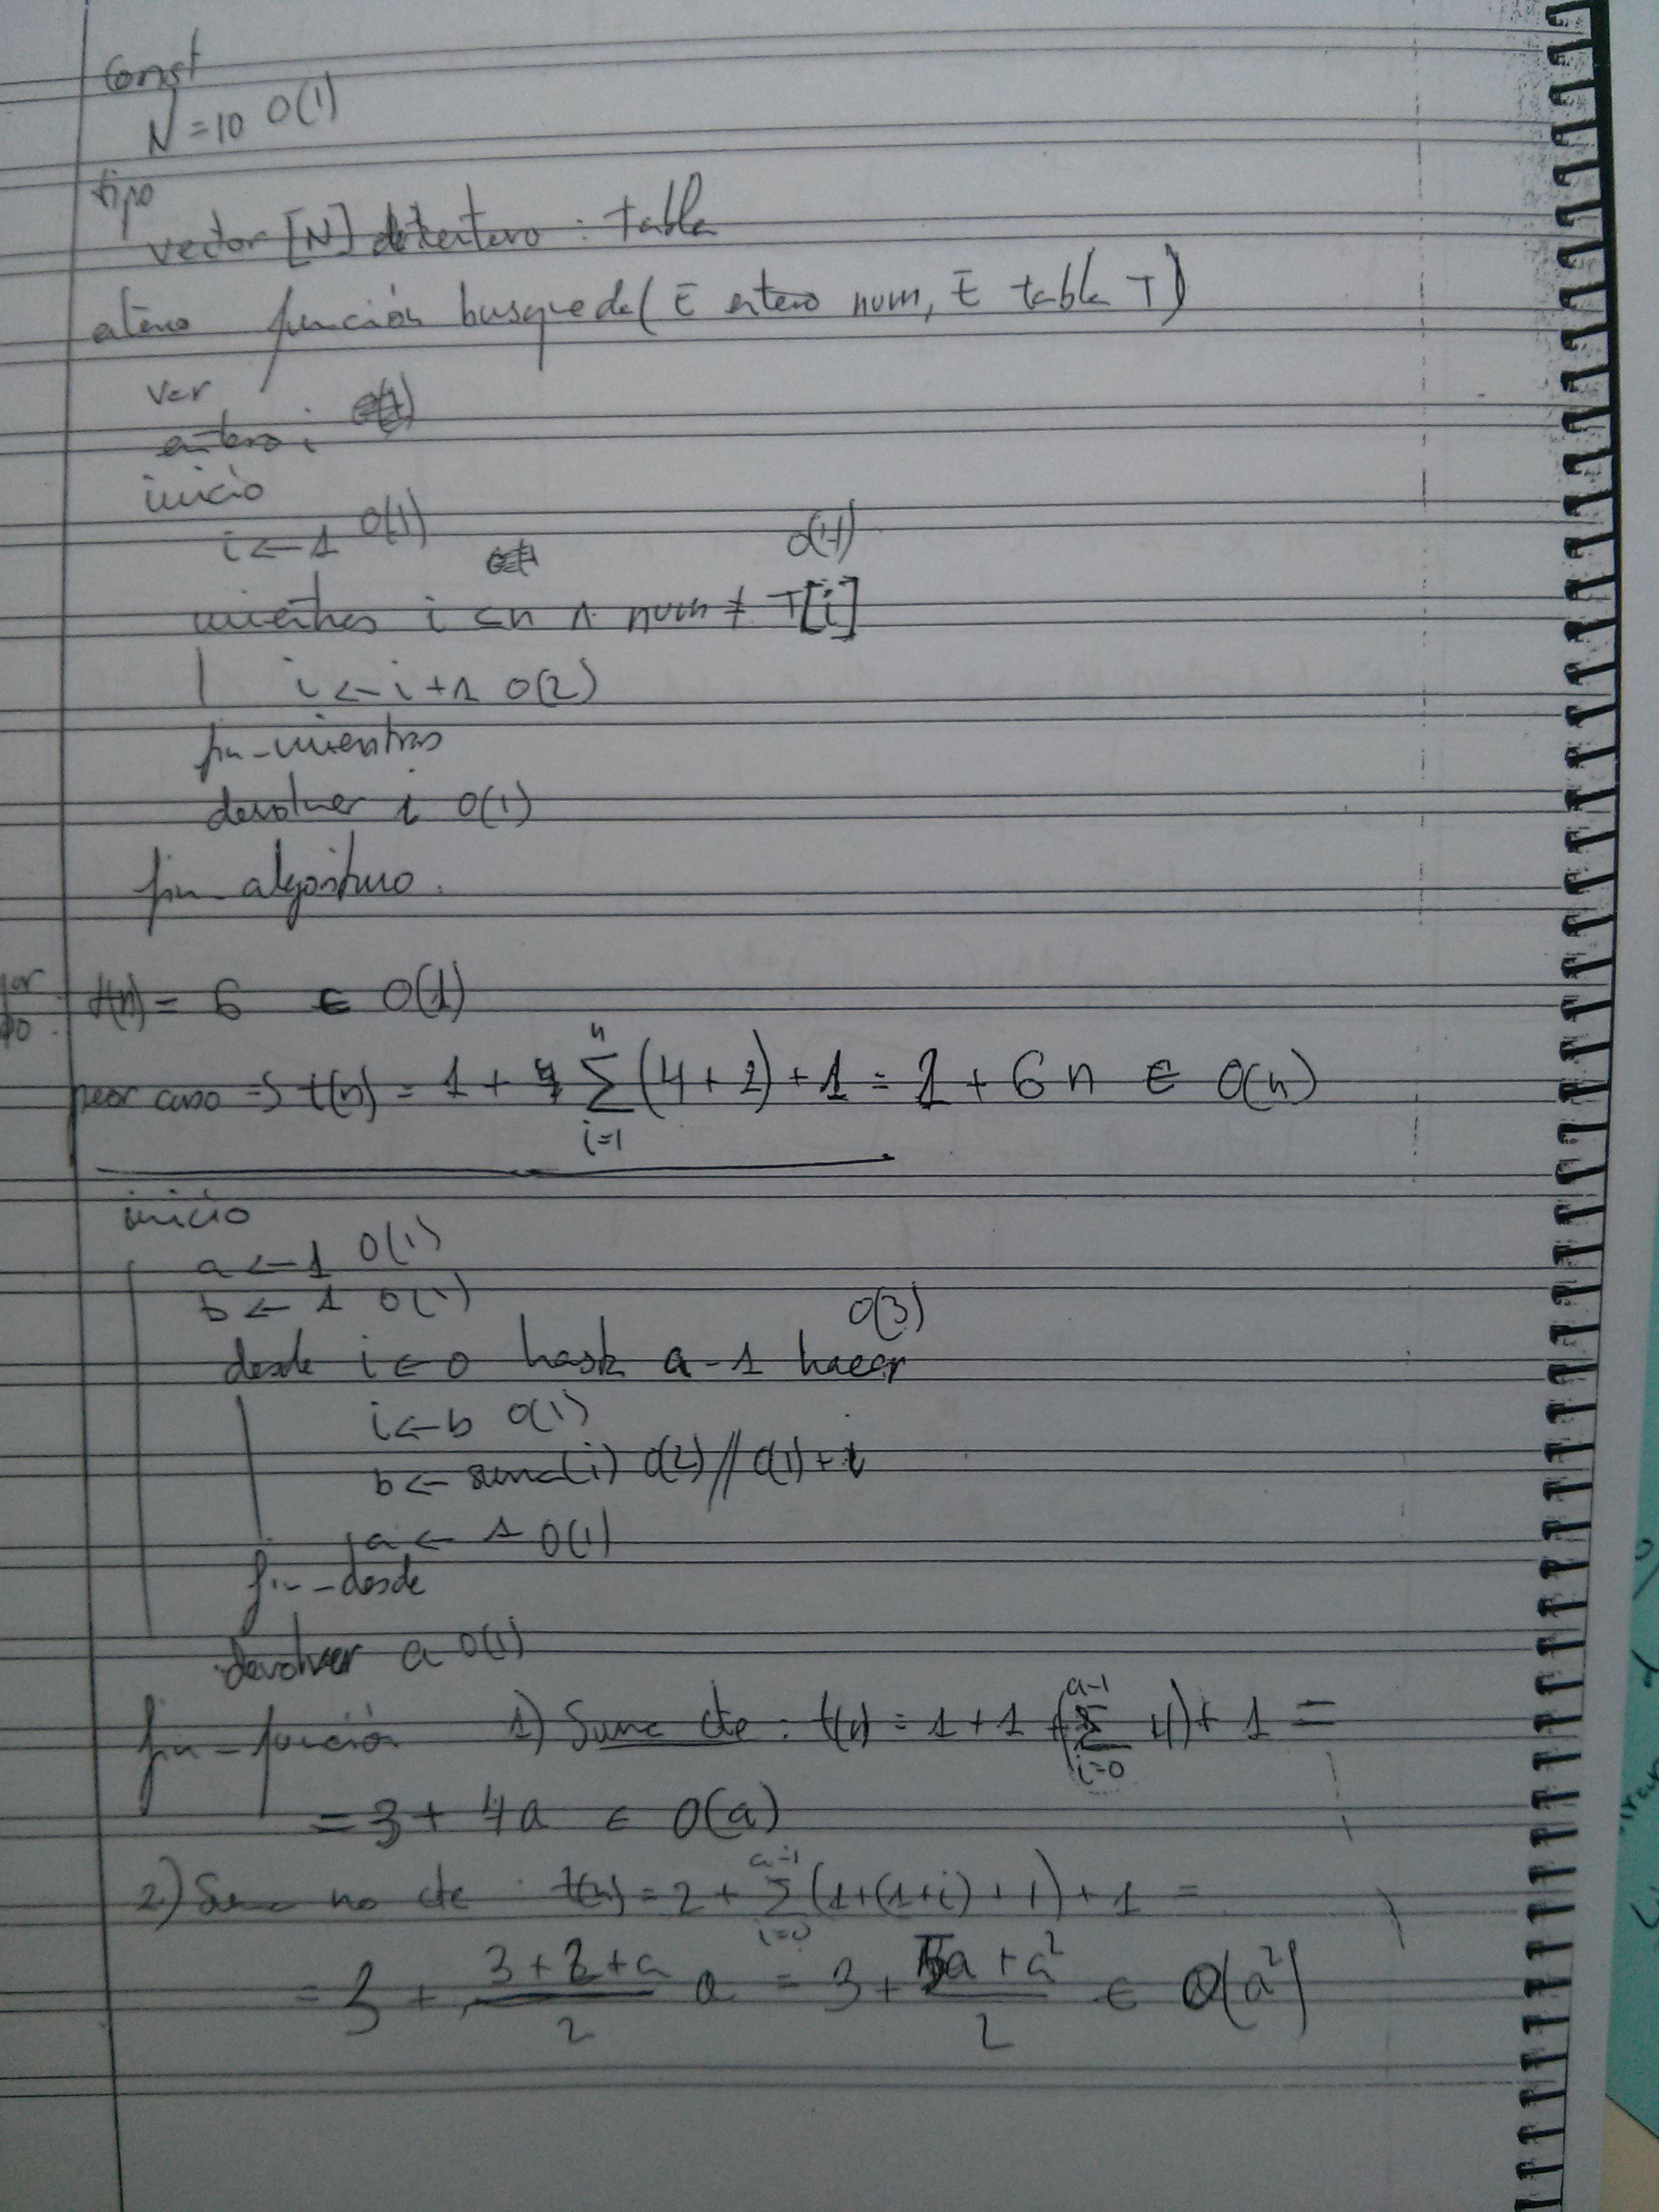 Const
N = 10 O(1)
tipo
vector [N] de entero : tabla
entero función busqueda( E entero num, E tabla T)
var
entero i
inicio
i ← 1 O(1)
O(4)
mientras i <= n ∧ num ≠ T[i]
i ← i + 1 O(2)
fin-mientras
devolver i O(1)
fin-algoritmo.
t(n) = 6 ∈ O(1)
peor caso => t(n) = 1 + ∑ i=1 n (4 + 2) + 1 = 2 + 6n ∈ O(n)
inicio
a ← 1 O(1)
b ← 1 O(1)
O(3)
desde i ← 0 hasta a - 1 hacer
i ← b O(1)
b ← suma(i) O(2) // O(1) + i
a ← 1 O(1)
fin-desde
devolver a O(1)
fin-función 1) Suma cte : t(n) = 1 + 1 + (∑ i=0 a-1 4) + 1 =
= 3 + 4a ∈ O(a)
2) Suma no cte : t(n) = 2 + ∑ i=0 a-1 (1 + (1 + i) + 1) + 1 =
= 3 + (3 + 2 + a)/2 a = 3 + (5a + a²)/2 ∈ O(a²)